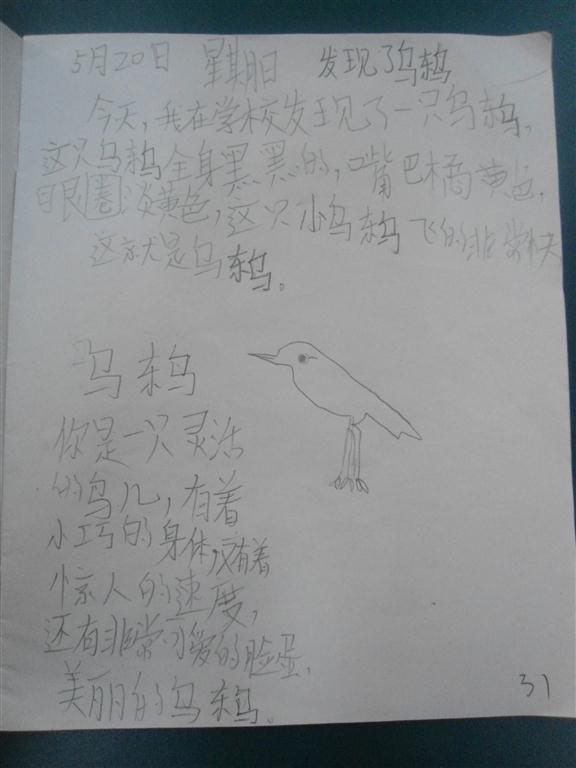 5月20日 星期日 发现了乌鸫
今天,我在学校发现了一只乌鸫,
这只乌鸫全身黑黑的,嘴巴橘黄色,
眼圈淡黄色,这只小乌鸫飞的非常快
这就是乌鸫。
乌鸫
你是一只灵活
的鸟儿,有着
小巧的身体,有着
惊人的速度,
还有非常可爱的脸蛋,
美丽的乌鸫。
31